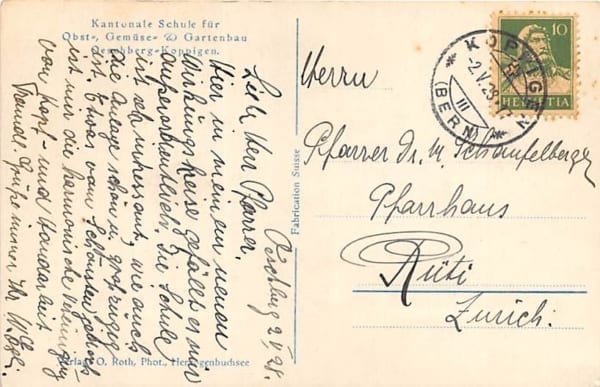 Kantonale Schule für
Obst-, Gemüse- & Gartenbau
Oeschberg-Koppigen.
Oeschberg 2. V. 28.
Lieber Herr Pfarrer.
Hier in meinem neuen
Wirkungskreise gefällt es mir
ausserordentlich. Die Schule
ist sehr interessant, wie auch
die Anlage schön u. grosszügig
ist. Etwas vom Schönsten jedoch
ist mir die harmonische Vereinigung
von Kopf- und Handarbeit
Freundl. Grüsse immer Ihr
Verlag O. Roth, Phot., Herzogenbuchsee
Fabrication Suisse
10
HELVETIA
KOPPIGEN
2.V.28
III
(BERN)
Herrn
Pfarrer Dr. M. Schaufelberger
Pfarrhaus
Rüti
Zürich.